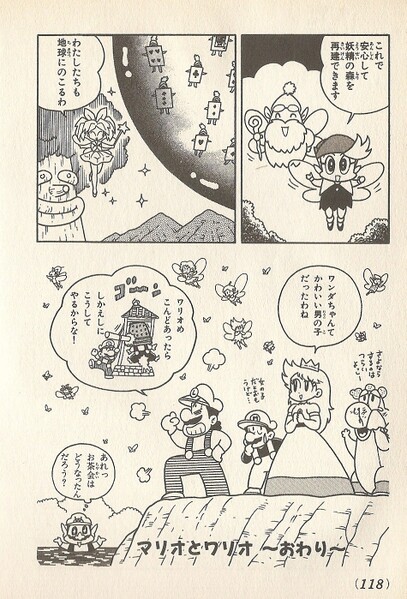 これで
安心して
妖精の森を
再建できます
わたしたちも
地球にのこるわ
ワンダちゃんて
かわいい男の子
だったわね
さよなら
するのは
つらい
けど
女の子
だとおも
うけど…
ゴーン
ワリオめ
こんどあったら
しかえしに
こうして
やるからな！
あれっ
お茶会は
どうなったん
だろう？
マリオとワリオ 〜おわり〜
(118)